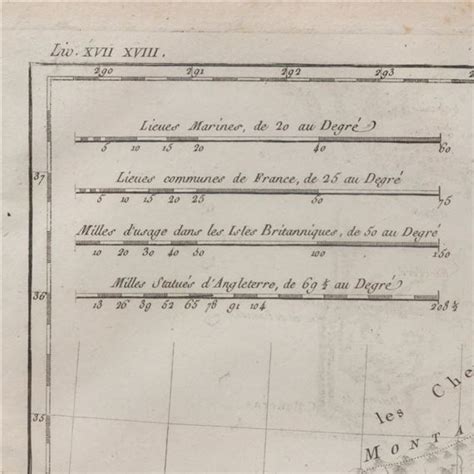 Liv. XVII XVIII.
290 291 292 293
Lieues Marines, de 20 au Degré
5 10 15 20 40 60
37
Lieues communes de France, de 25 au Degré
5 10 15 20 25 50 75
Milles d'usage dans les Isles Britanniques, de 50 au Degré
10 20 30 40 50 100 150
Milles Statués d'Angleterre, de 69 ½ au Degré
36
13 26 39 52 65 78 91 104 208 ½
35
les Che
MONTA